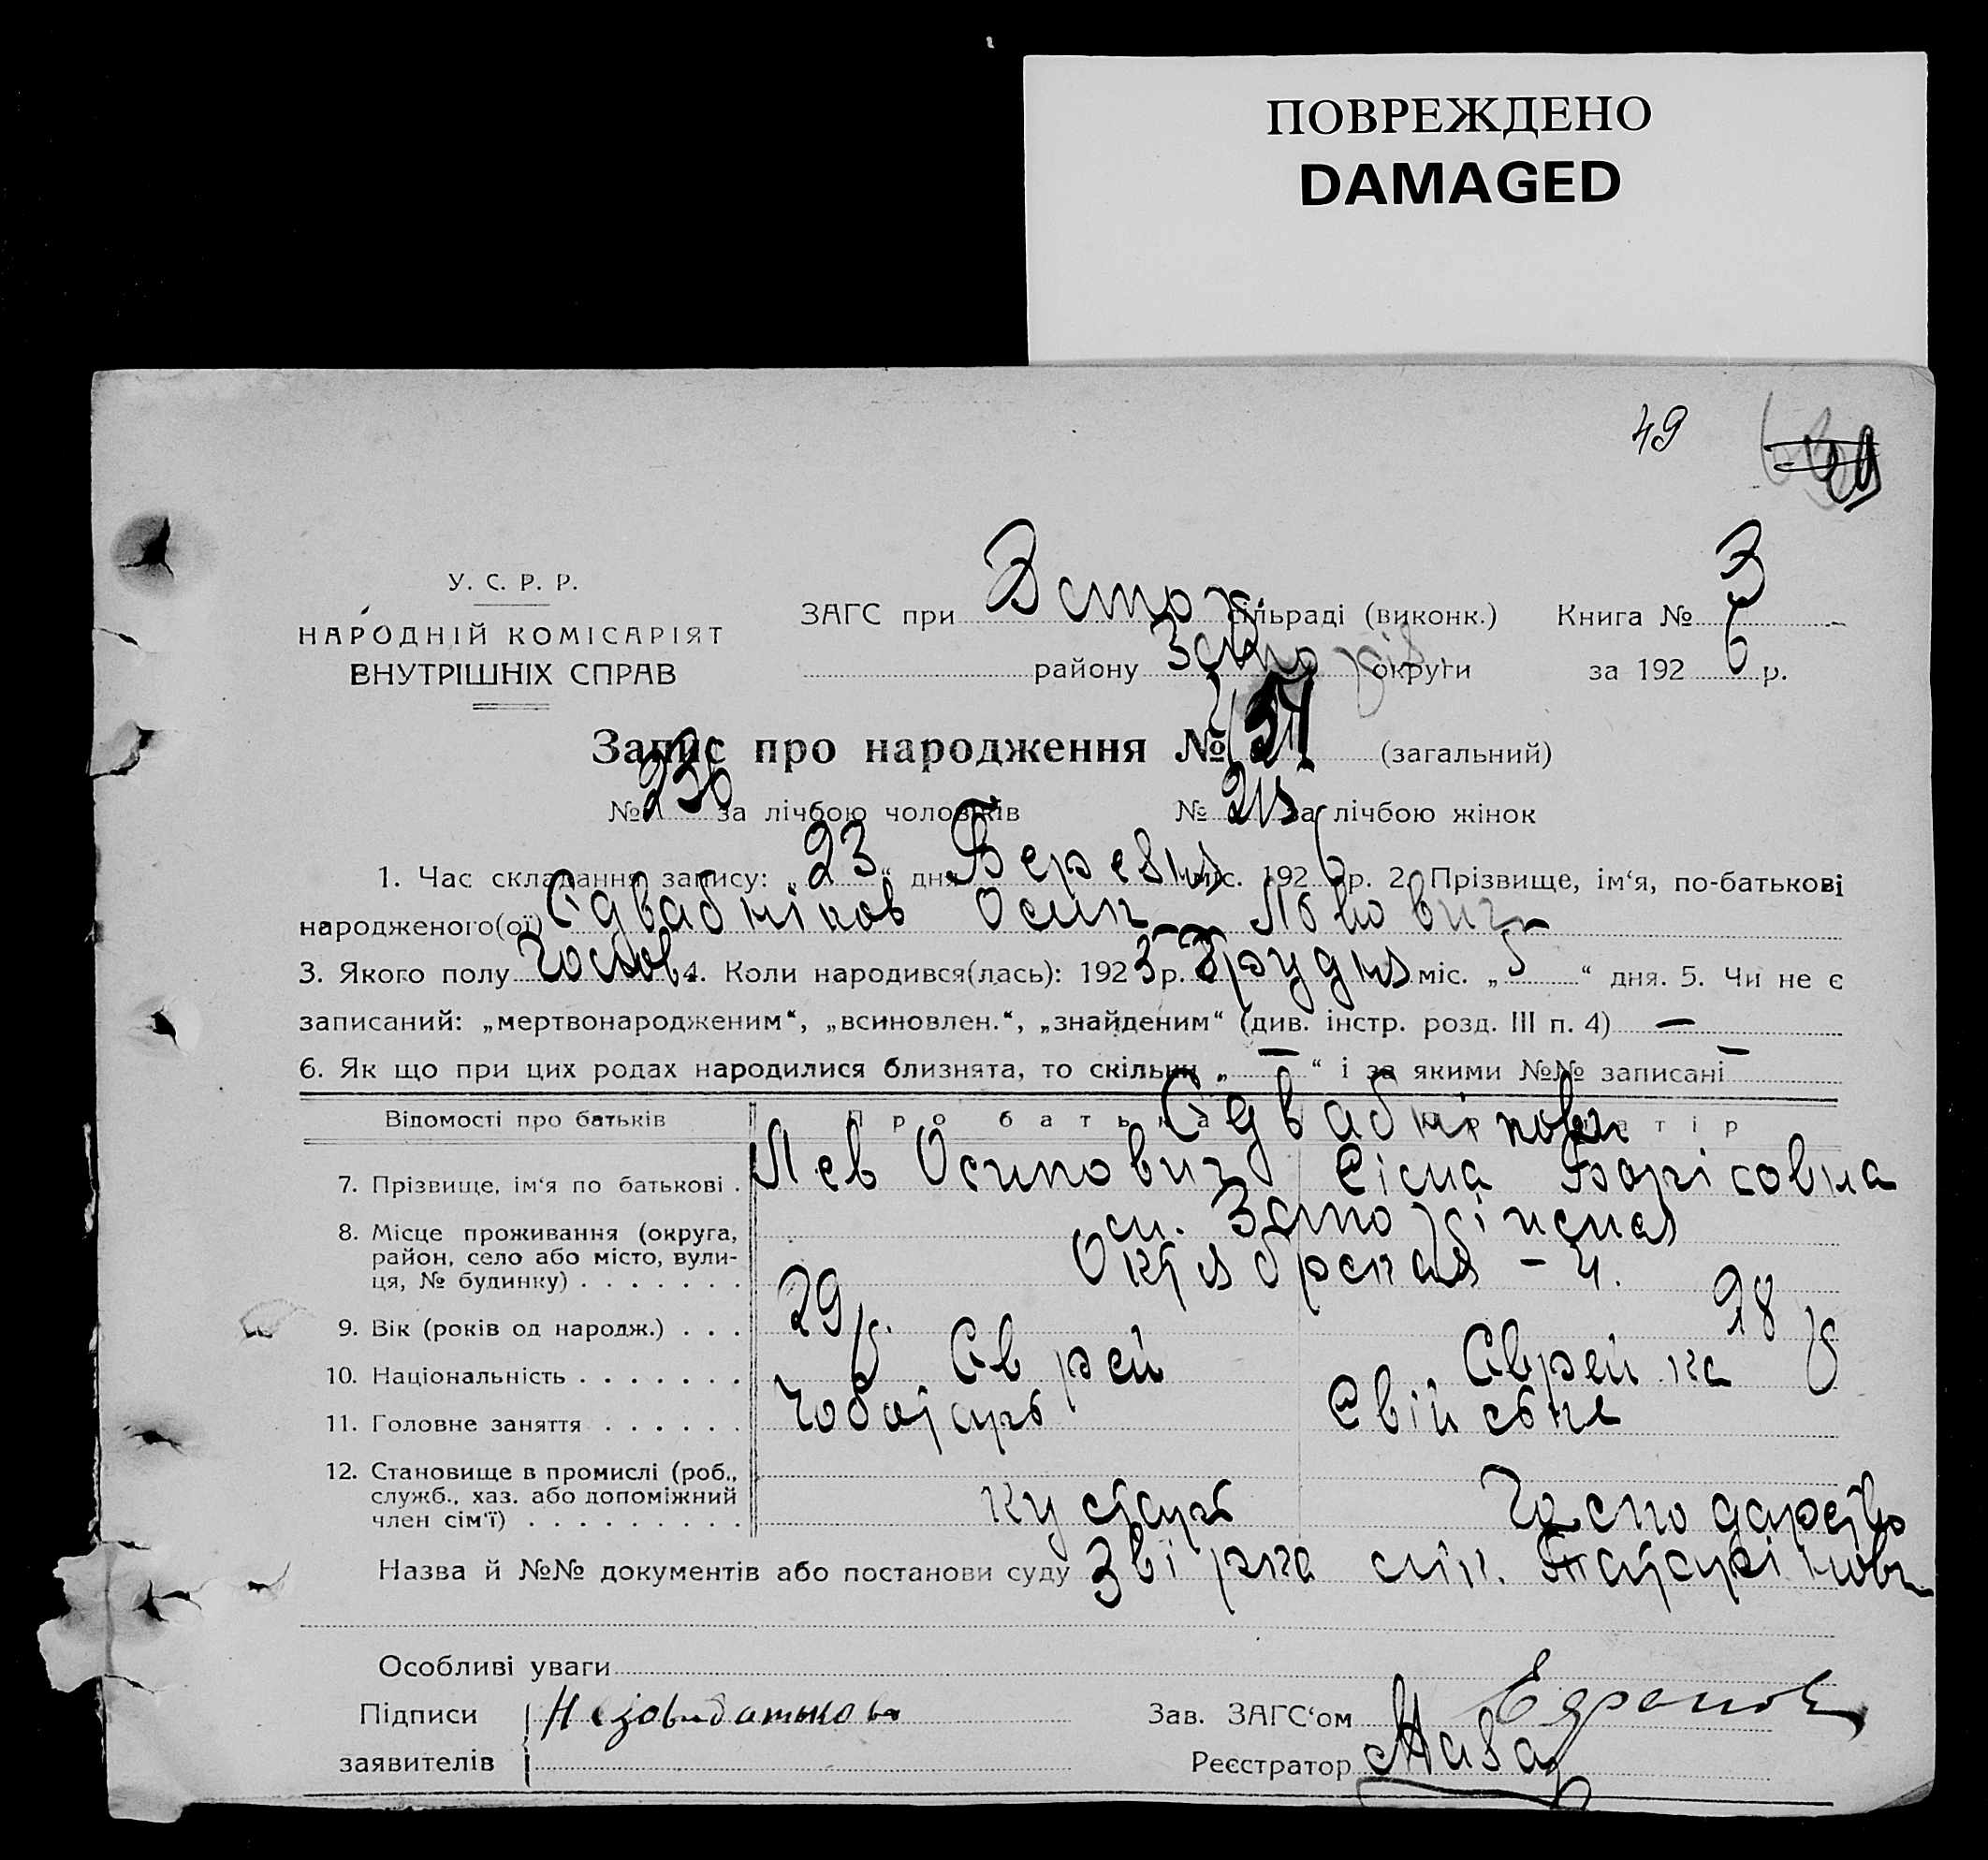 ПОВРЕЖДЕНО
DAMAGED
49
У. С. Р. Р.
НАРОДНІЙ КОМІСАРІЯТ
ВНУТРІШНІХ СПРАВ
ЗАГС при сільраді (виконк.) Книга № 3
району округи за 1926 р.
Запис про народження № (загальний)
№ 236 за лічбою чоловіків № за лічбою жінок
1. Час складання запису: „23“ дня Березня міс. 1926 р. 2. Прізвище, ім‘я, по-батькові
народженого(ої) Єдвабніков Осип Львович
3. Якого полу Чолов. 4. Коли народився(лась): 1925 р. Грудня міс. „5“ дня. 5. Чи не є
записаний: „мертвонародженим“, „всиновлен.“, „знайденим“ (див. інстр. розд. III п. 4) —
6. Як що при цих родах народилися близнята, то скільки „—“ і за якими №№ записані —
Відомості про батьків Про батька Про матір
Єдвабнікови
7. Прізвище, ім‘я по батькові . Лев Осипович Сіма Борісовна
8. Місце проживання (округа,
район, село або місто, вули-
ця, № будинку) . . . . . . . Октябрская – 4.
9. Вік (років од народж.) . . . 29 р. 28 р
10. Національність . . . . . . . Єврей Єврейка
11. Головне заняття . . . . . . Чоботарь Свійське
12. Становище в промислі (роб.,
служб., хаз. або допоміжний
член сім‘ї) . . . . . . . . . кустарь Господарство
Назва й №№ документів або постанови суду
Особливі уваги
Підписи
заявителів
Зав. ЗАГС‘ом
Реєстратор